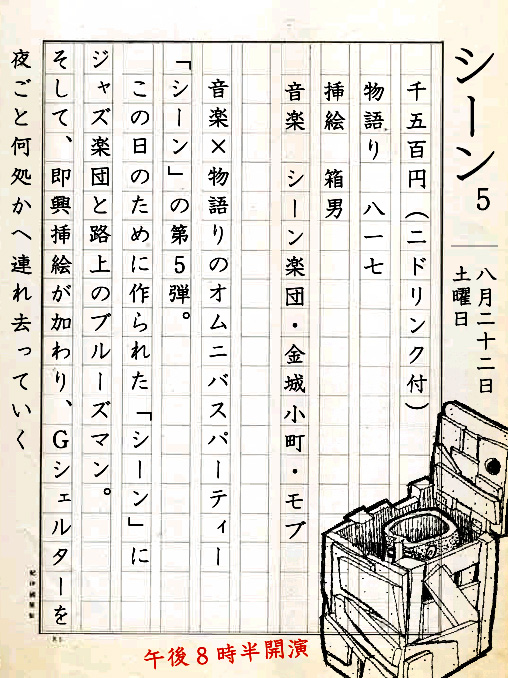 シーン5
八月二十二日
土曜日
千五百円（二ドリンク付）
物語り　八一七
挿絵　箱男
音楽　シーン楽団・金城小町・モブ
音楽×物語りのオムニバスパーティー
「シーン」の第5弾。
この日のために作られた「シーン」に
ジャズ楽団と路上のブルーズマン。
そして、即興挿絵が加わり、Gシェルターを
夜ごと何処かへ連れ去っていく
午後8時半開演